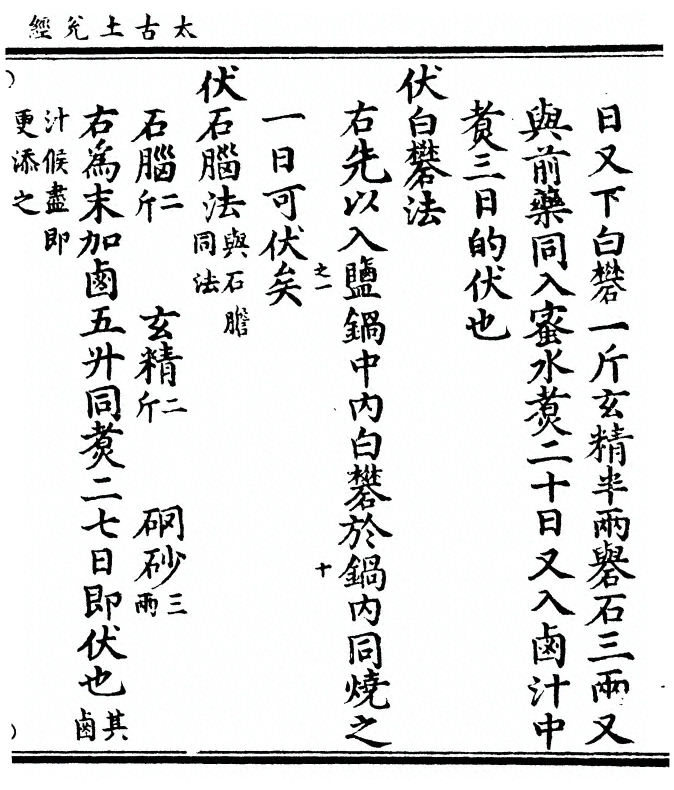 太古土兊經
日又下白礬一斤玄精半兩礜石三兩又
與前藥同入蜜水煑二十日又入鹵汁中
煑三日的伏也
伏白礬法
右先以入鹽鍋中內白礬於鍋內同燒之
之一
十
一日可伏矣
伏石腦法與石膽同法
石腦二斤 玄精二斤 硇砂三兩
右為末加鹵五升同煑二七日即伏也其鹵
汁候盡即
更添之